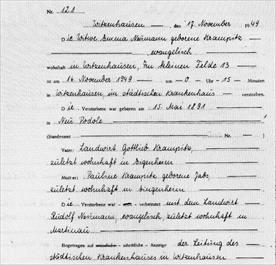 Nr. 121
Witzenhausen, den 17. November 1949
Die Witwe Emma Neumann geborene Krampitz
evangelisch
wohnhaft in Witzenhausen, Am kleinen Felde 13
ist am 14. November 1949 um 0 Uhr 15 Minuten
in Witzenhausen, im städtischen Krankenhaus verstorben.
Die Verstorbene war geboren am 15. Mai 1891
in Neu Podole
(Standesamt Nr. )
Vater: Landwirt Gottlieb Krampitz,
zuletzt wohnhaft in
Mutter: Pauline Krampitz geborene
zuletzt wohnhaft in
Die Verstorbene war verheiratet mit dem Landwirt
Rudolf Neumann, evangelisch, zuletzt wohnhaft in
Eingetragen auf schriftliche Anzeige der Leitung des
städtischen Krankenhauses in Witzenhausen